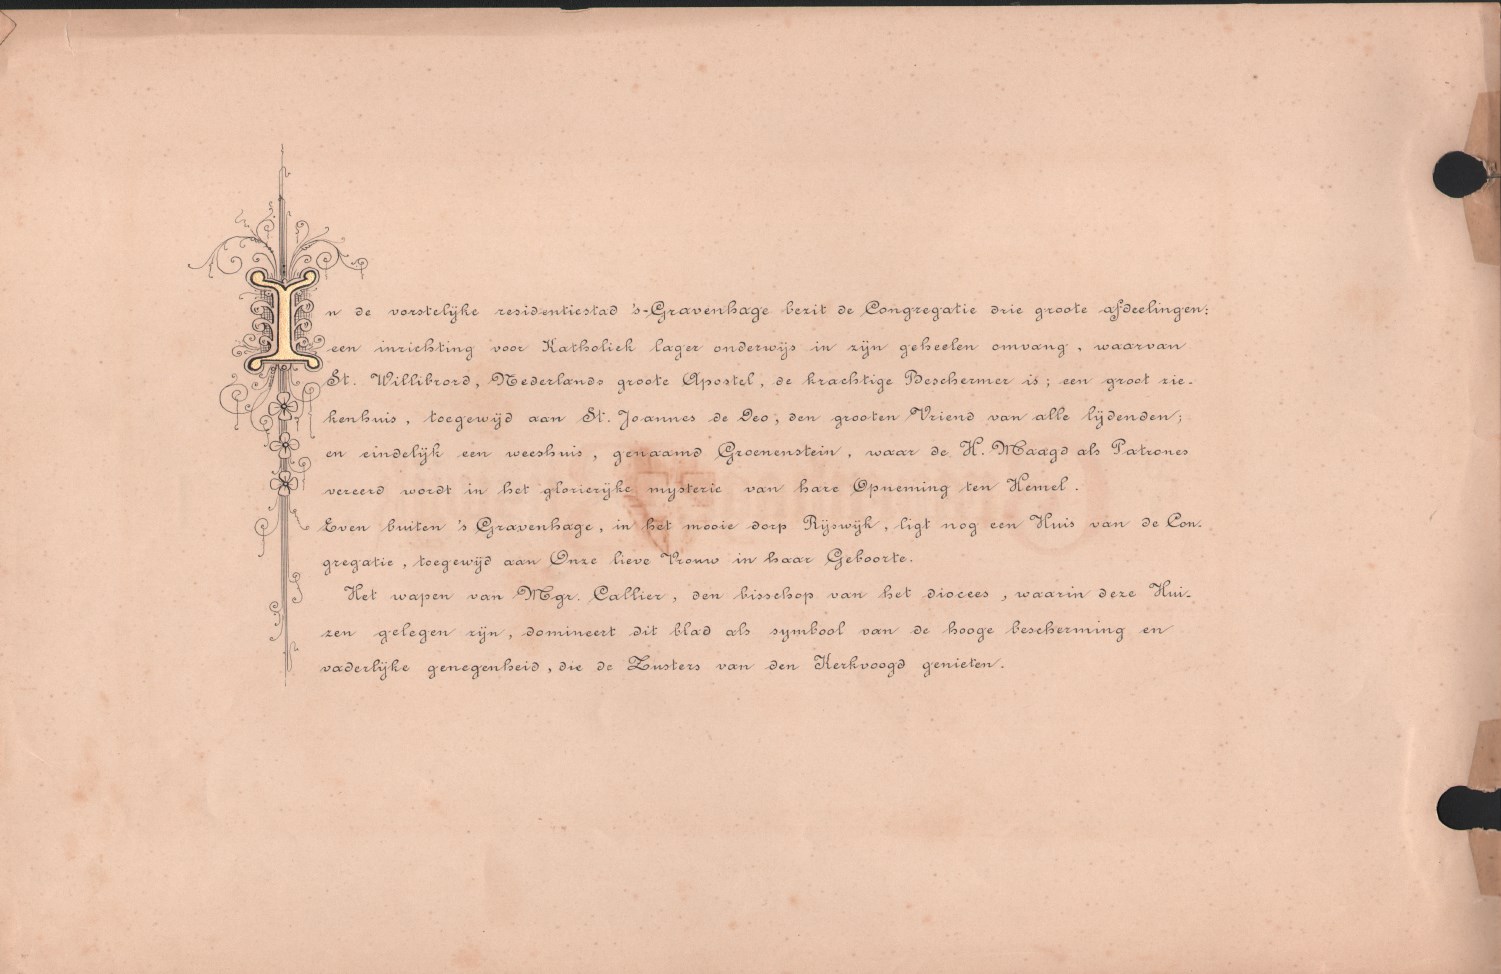 In de vorstelijke residentiestad 's-Gravenhage bezit de Congregatie drie groote afdeelingen:
een inrichting voor Katholiek lager onderwijs in zijn geheelen omvang, waarvan
St. Willibrord, Nederlands groote Apostel, de krachtige Beschermer is; een groot zie-
kenhuis, toegewijd aan St. Joannes de Deo, den grooten Vriend van alle lijdenden;
en eindelijk een weeshuis, genaamd Groenenstein, waar de H. Maagd als Patrones
vereerd wordt in het glorierijke mysterie van hare Opneming ten Hemel.
Even buiten 's Gravenhage, in het mooie dorp Rijswijk, ligt nog een Huis van de Con-
gregatie, toegewijd aan Onze lieve Vrouw in haar Geboorte.
Het wapen van Mgr. Callier, den bisschop van het diocees, waarin deze Hui-
zen gelegen zijn, domineert dit blad als symbool van de hooge bescherming en
vaderlijke genegenheid, die de Zusters van den Kerkvoogd genieten.